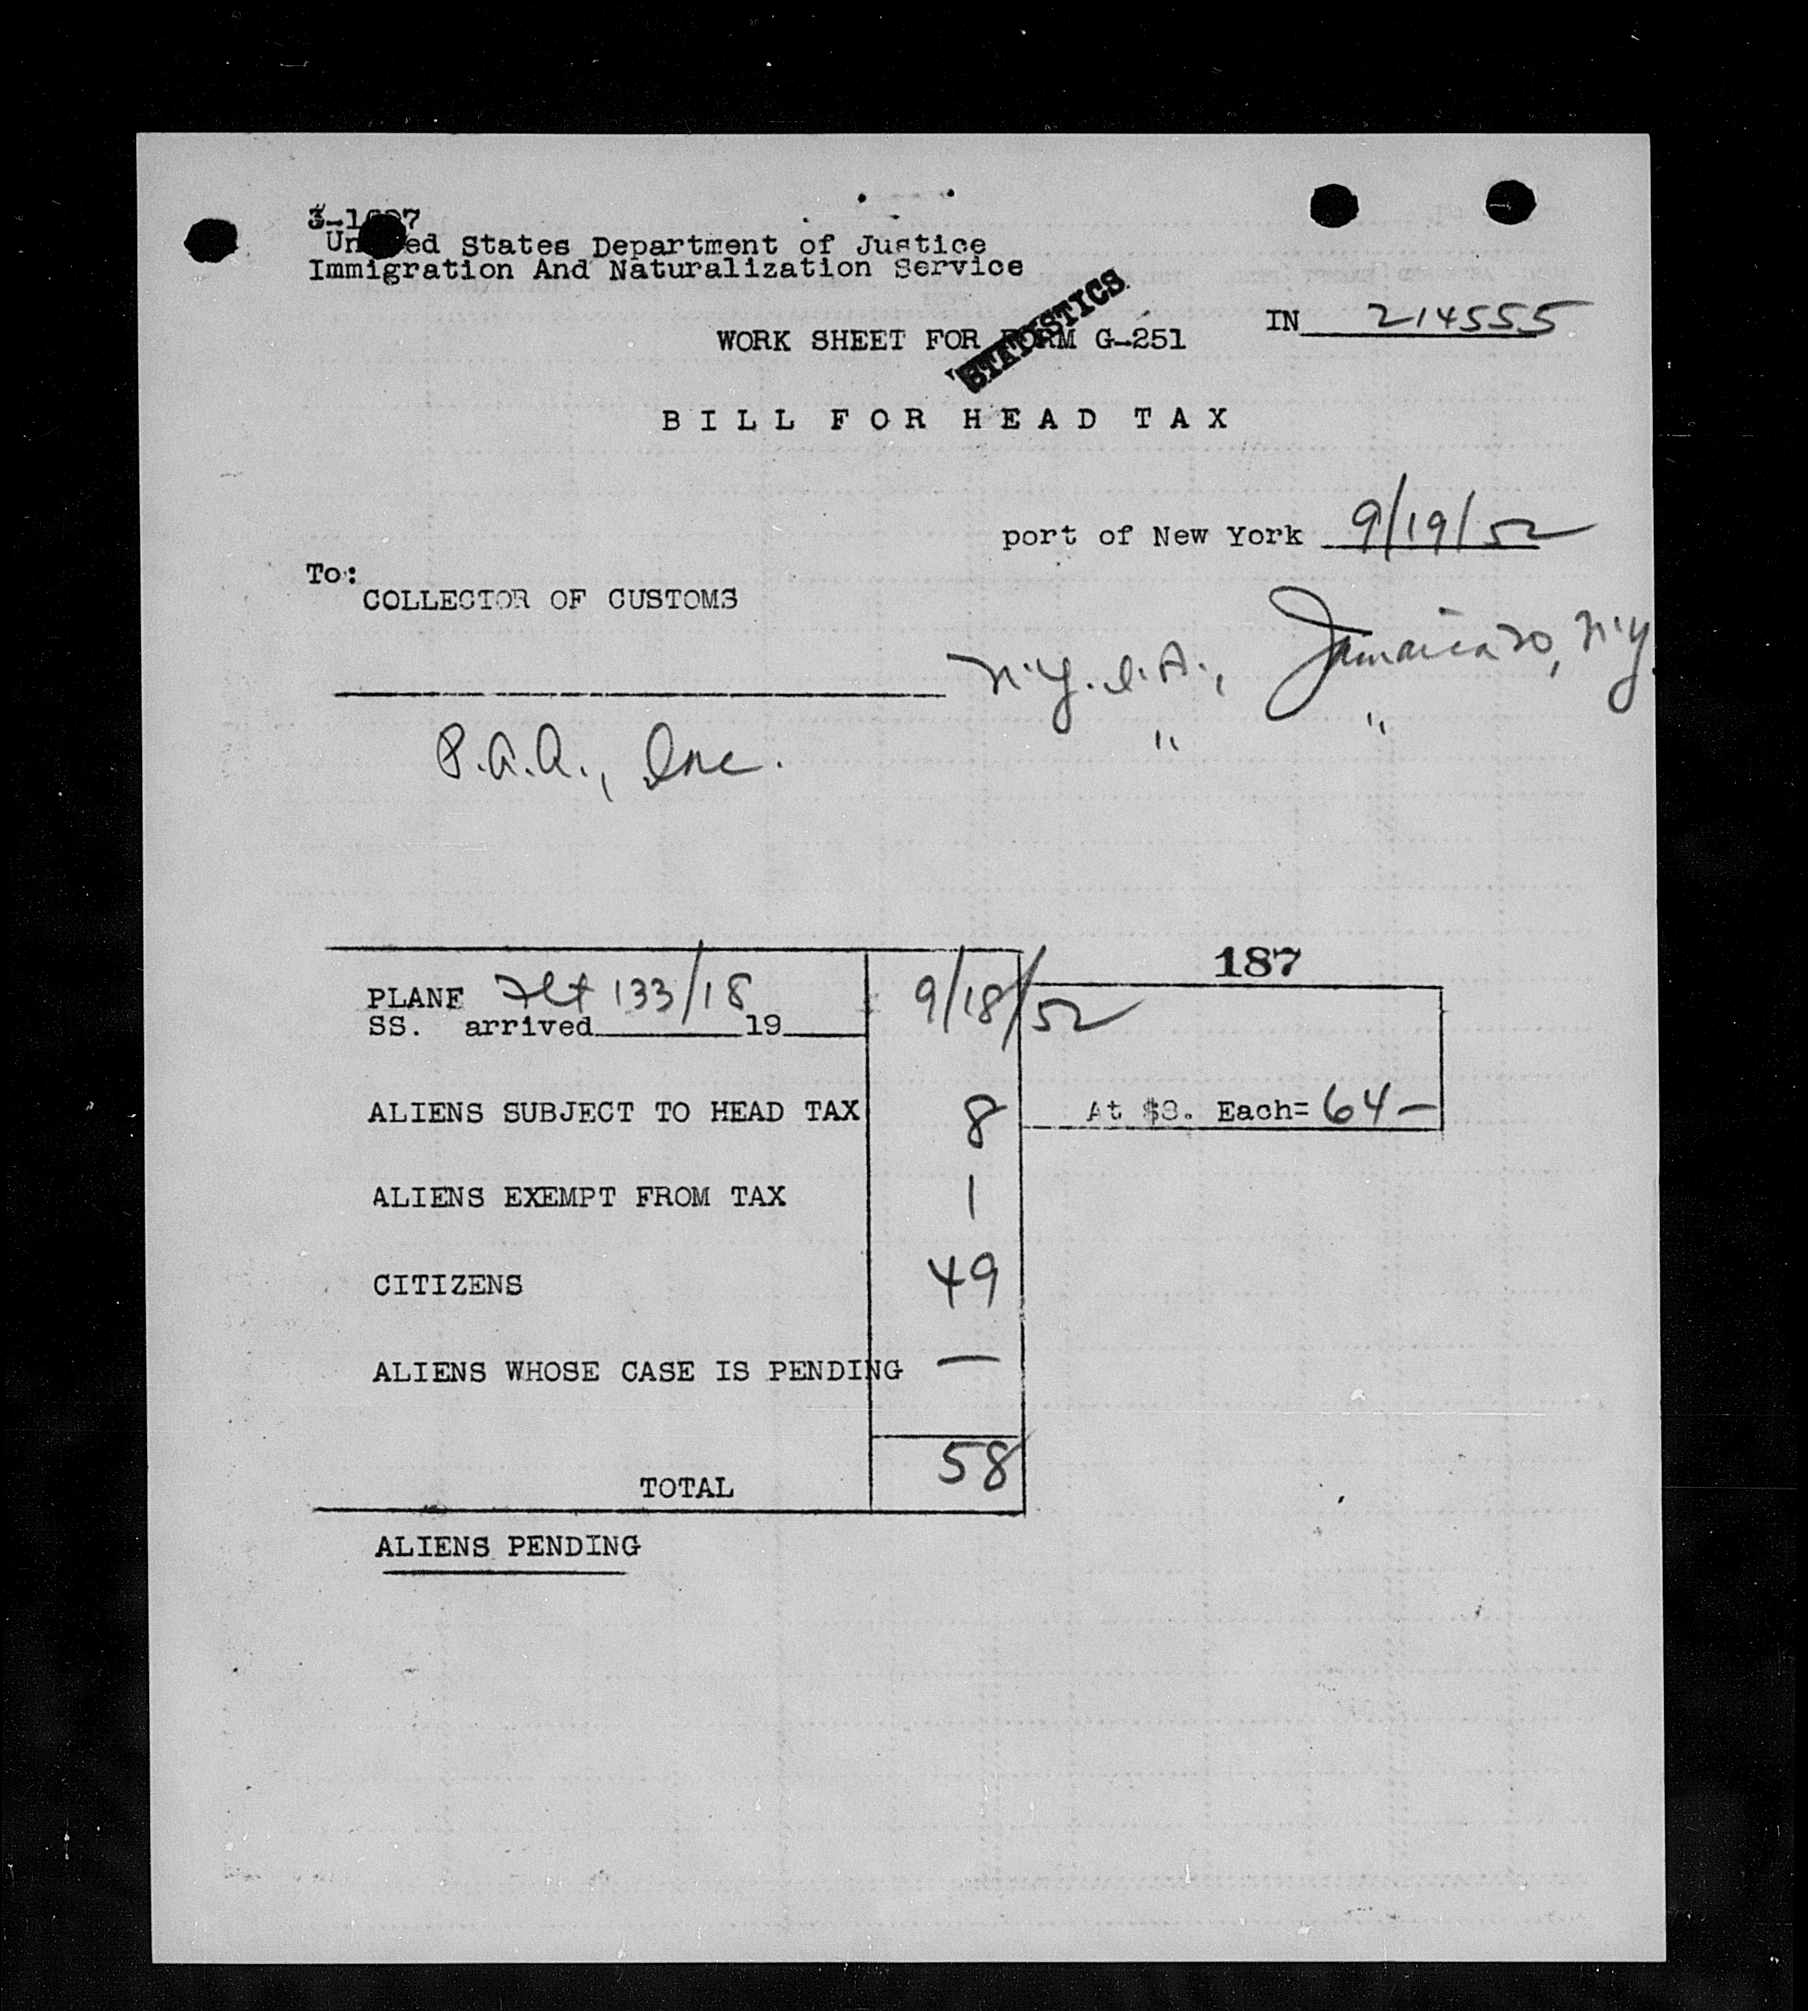 Un ed States Department of Justice
Immigration And Naturalization Service
STATISTICS
IN 214555
WORK SHEET FOR FORM G-251
BILL FOR HEAD TAX
port of New York 9/19/52
To:
COLLECTOR OF CUSTOMS
N.Y.I.A., Jamaica 30, N.Y.
P.A.A., Inc. " "
187
PLANE Flt 133/18 9/18/52
SS. arrived 19
ALIENS SUBJECT TO HEAD TAX 8 At $8. Each= 64-
ALIENS EXEMPT FROM TAX 1
CITIZENS 49
ALIENS WHOSE CASE IS PENDING —
TOTAL 58
ALIENS PENDING